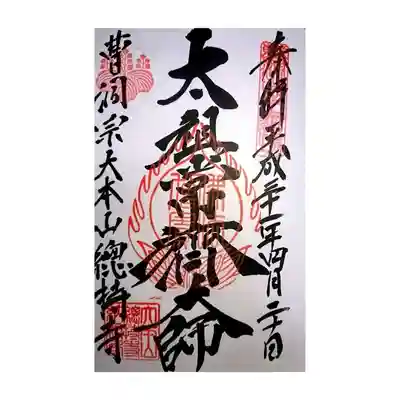 奉拝 平成三十一年四月二十日
太祖常濟大師
曹洞宗大本山總持寺